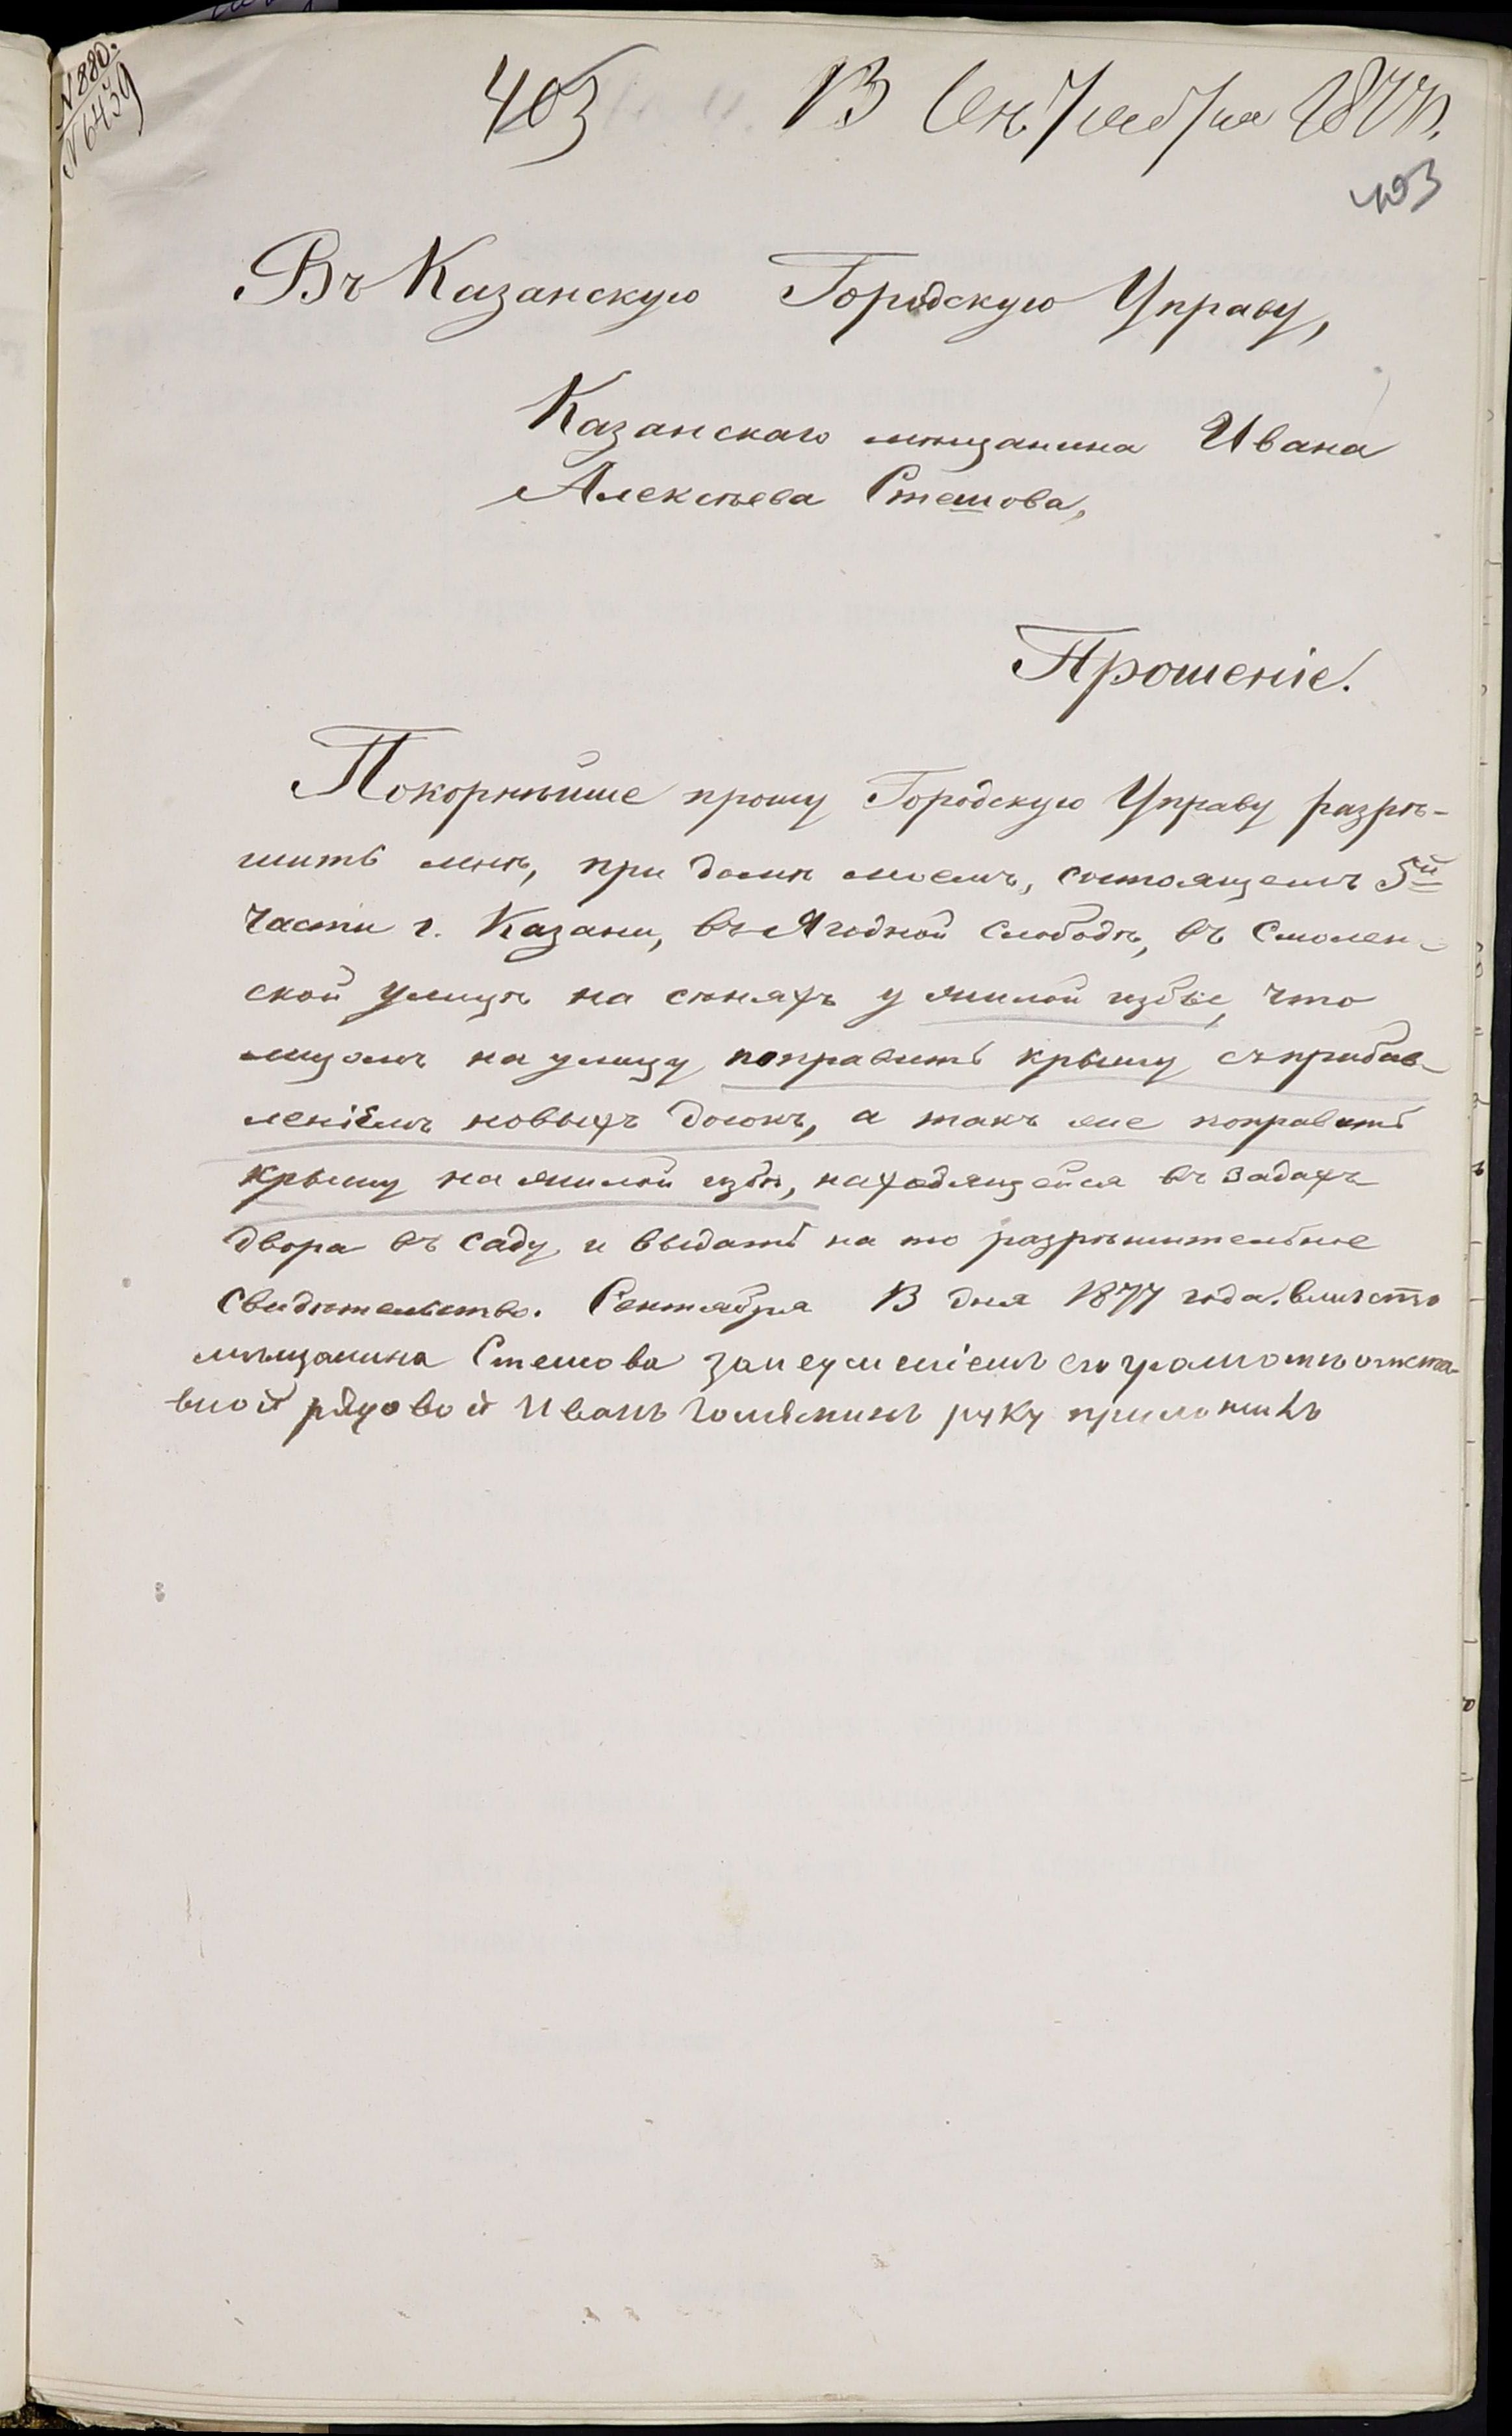 № 880.
№ 6439
403 13 Сентября 1877 г.
403
Въ Казанскую Городскую Управу,
Казанскаго мѣщанина Ивана
Алексѣева Стешова,
Прошеніе.
Покорнѣйше прошу Городскую Управу разрѣ-
шить мнѣ, при домѣ моемъ, состоящемъ 5й
части г. Казани, въ Ягодной слободѣ, въ Смолен-
ской улицѣ на сѣняхъ у жилой избы, что
лицомъ на улицу поправить крышу съ прибав-
леніемъ новыхъ досокъ, а такъ же поправить
крышу на жилой избѣ, находящейся въ задахъ
двора въ саду, и выдать на то разрѣшительное
свидѣтельство. Сентября 13 дня 1877 года. вмѣсто
мѣщанина Стешова
рядовой Иванъ руку приложилъ